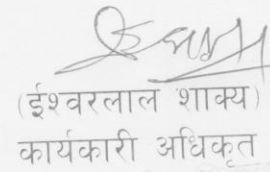 (ईश्वरलाल शाक्य)
कार्यकारी अधिकृत